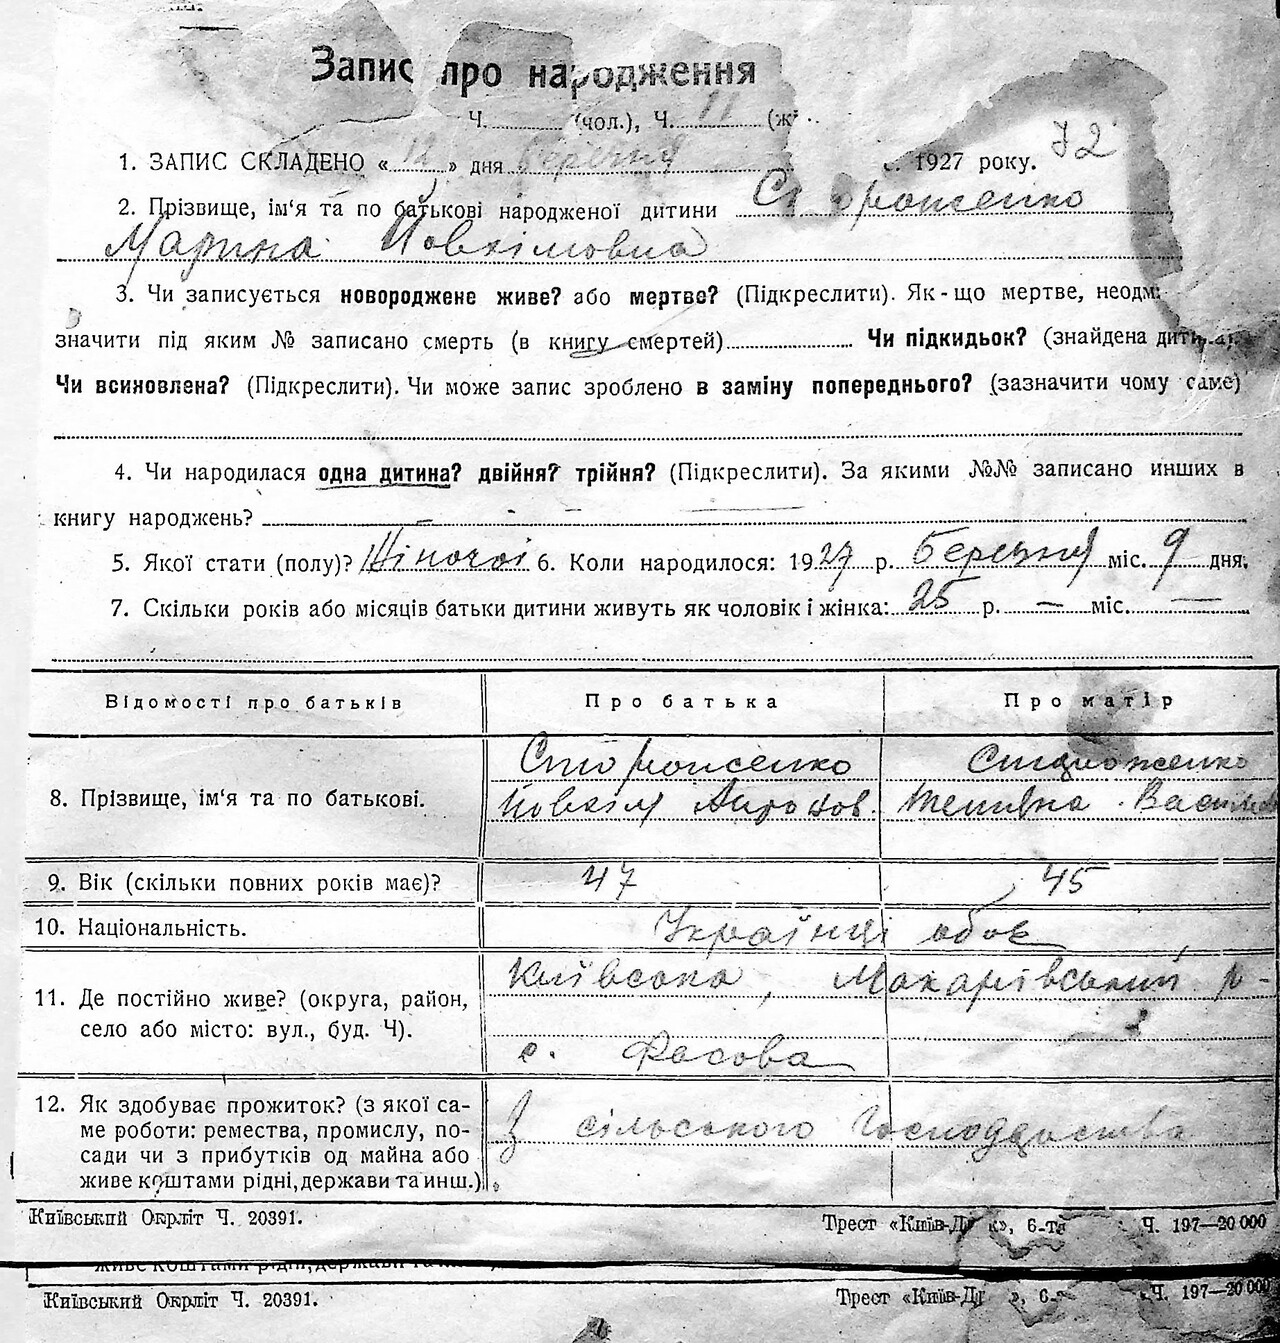 Запис про народження
Ч. (чол.), Ч. 11 (ж
1. ЗАПИС СКЛАДЕНО « 12 » дня березня 1927 року. 72
2. Прізвище, ім'я та по батькові народженої дитини Сторонженко
Марина Йовхімовна
3. Чи записується новороджене живе? або мертве? (Підкреслити). Як-що мертве, неодм
значити під яким № записано смерть (в книгу смертей) Чи підкидьок? (знайдена дит
Чи всиновлена? (Підкреслити). Чи може запис зроблено в заміну попереднього? (зазначити чому саме)
4. Чи народилася одна дитина? двійня? трійня? (Підкреслити). За якими №№ записано инших в
книгу народжень? — — —
5. Якої стати (полу)? Жіночої 6. Коли народилося: 1927 р. березня міс. 9 дня.
7. Скільки років або місяців батьки дитини живуть як чоловік і жінка: 25 р. — міс. —
Відомості про батьків Про батька Про матір
Стороженко Стороженко
8. Прізвище, ім'я та по батькові. Йовхім Васил
9. Вік (скільки повних років має)? 47 45
10. Національність. Українці обоє
11. Де постійно живе? (округа, район, Київська, Макарівський р-
село або місто: вул., буд. Ч).
с. Фасова
12. Як здобуває прожиток? (з якої са-
ме роботи: ремества, промислу, по- З сільського господарства
сади чи з прибутків од майна або
живе коштами рідні, держави та инш.)
Київський Окрліт Ч. 20391. Трест «Київ-Д к», 6-та Ч. 197—20 000
живе коштами рідні, держави та инш.)
Київський Окрліт Ч. 20391. Трест «Київ-Др », 6- Ч. 197—20 000